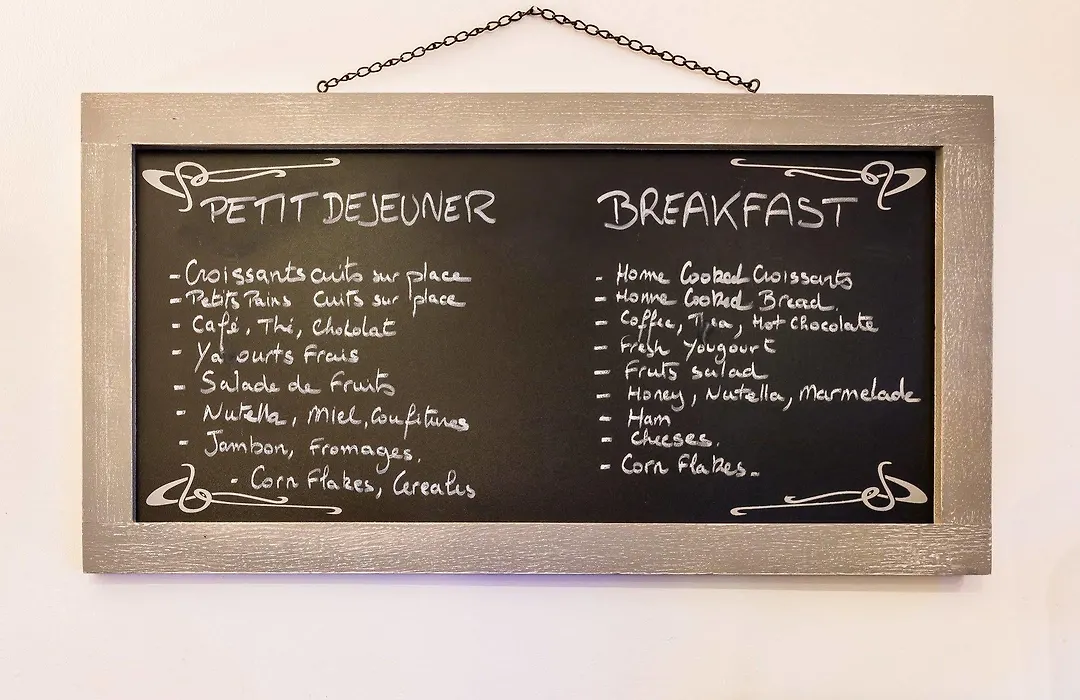 PETIT DEJEUNER
- Croissants cuits sur place
- Petits Pains cuits sur place
- Café, Thé, Chocolat
- Yaourts Frais
- Salade de Fruits
- Nutella, Miel, Confitures
- Jambon, Fromages.
- Corn Flakes, Cereales
BREAKFAST
- Home Cooked Croissants
- Home Cooked Bread.
- Coffee, Tea, Hot Chocolate
- Fresh Yougourt
- Fruts salad
- Honey, Nutella, Marmelade
- Ham
- Cheeses.
- Corn Flakes -